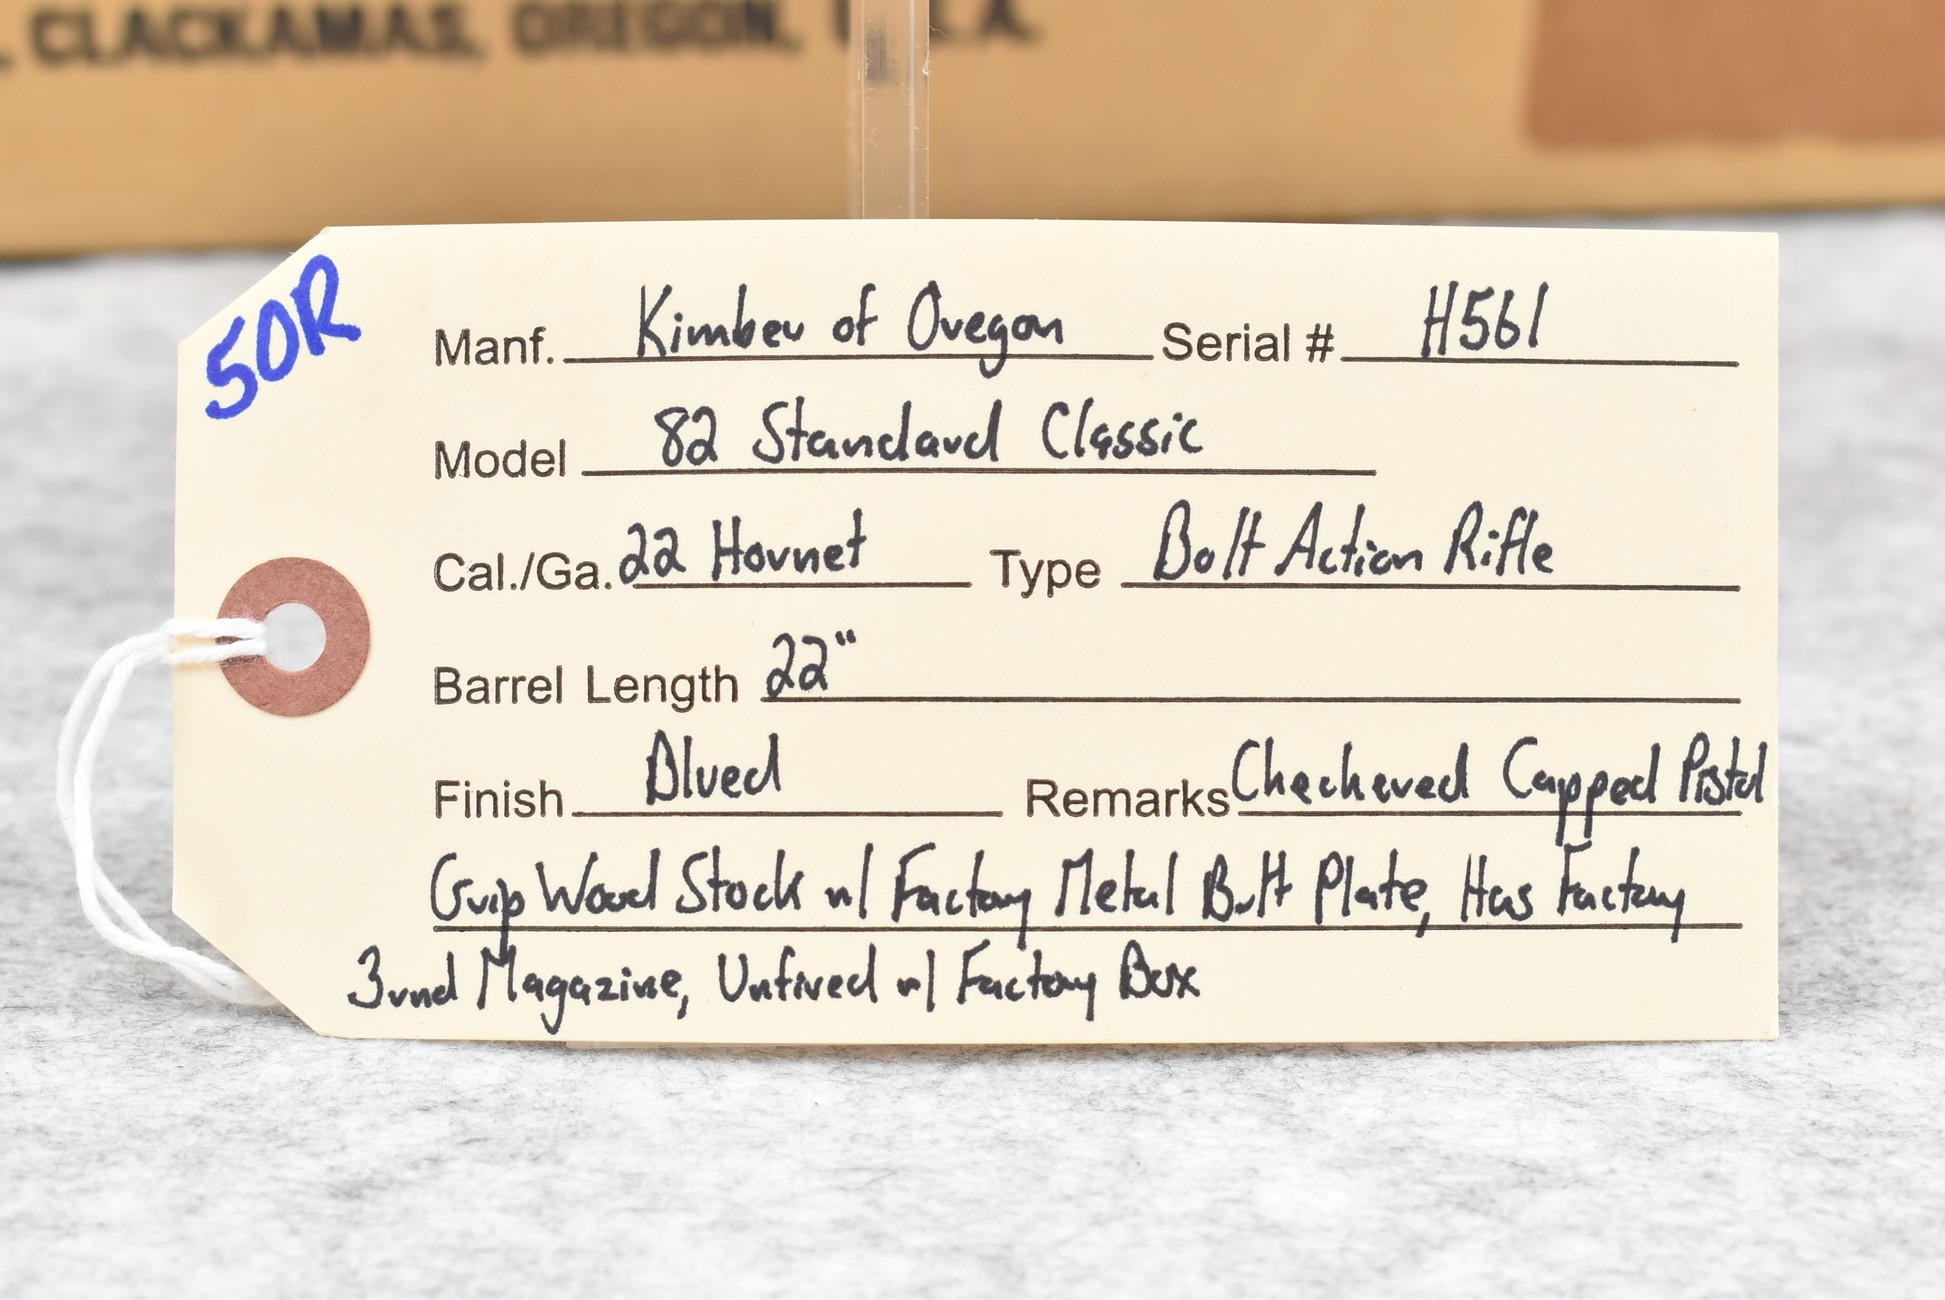 , CLACKAMAS, OREGON, U.S.A.
50R
Manf. Kimber of Oregon Serial # H561
Model 82 Standard Classic
Cal./Ga. 22 Hornet Type Bolt Action Rifle
Barrel Length 22"
Finish Blued Remarks Checkered Capped Pistol
Grip Wood Stock w/ Factory Metal Butt Plate, Has Factory
3rnd Magazine, Unfired w/ Factory Box